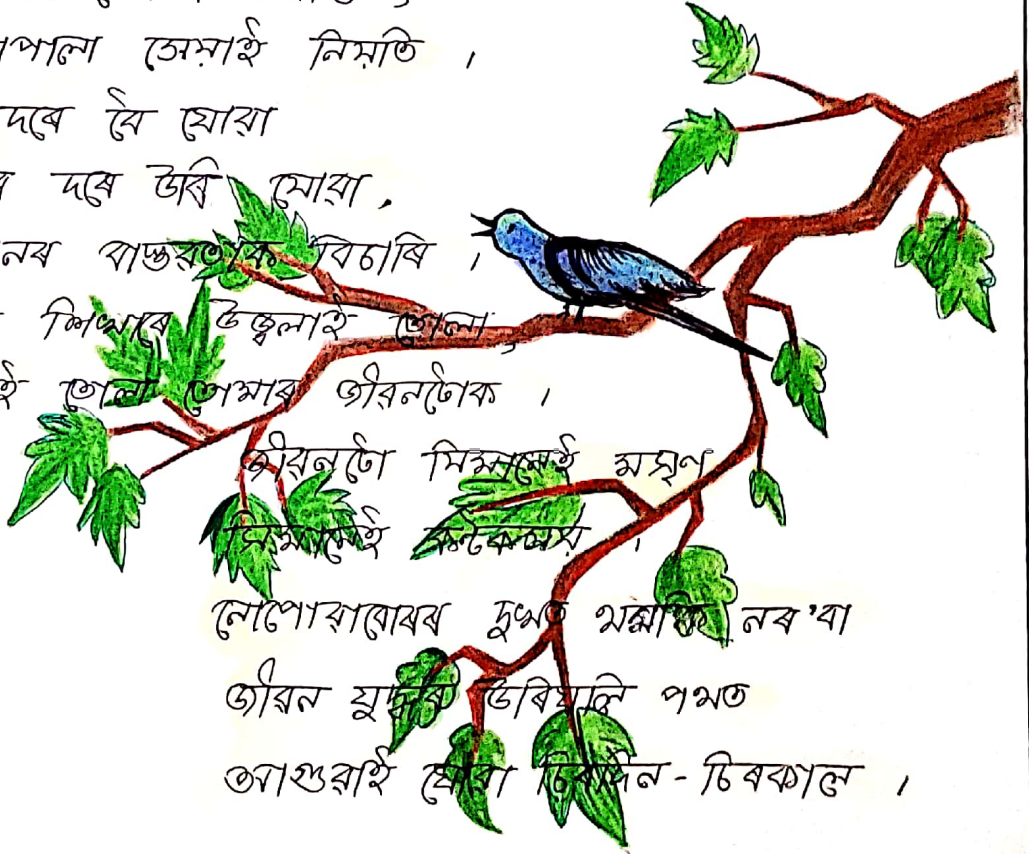 নাপালা সেয়াই নিয়তি ।
দৰে বৈ যোৱা
দৰে উৰি যোৱা,
বাস্তৱতাক বিচাৰি ।
শিখাৰে উজ্বলাই তোলা,
তোলা তোমাৰ জীৱনটোক ।
জীৱনটো সিমানেই মসৃণ
সিমানেই কণ্টকময় ।
নোপোৱাবোৰৰ দুখত ধমকি নৰ'বা
জীৱন যুদ্ধৰ উৰিধূলি পথত
আগুৱাই যোৱা চিৰদিন - চিৰকাল ।